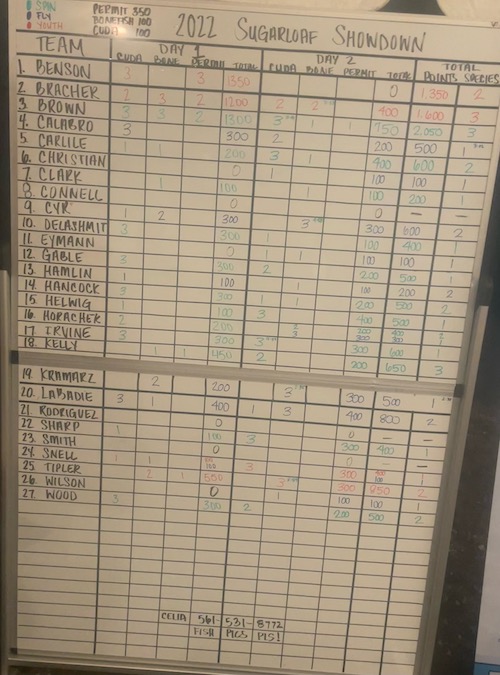 SPIN PERMIT 350
FLY BONEFISH 100
YOUTH CUDA 100
2022 SUGARLOAF SHOWDOWN
TEAM DAY 1 DAY 2 TOTAL
CUDA BONE PERMIT TOTAL CUDA BONE PERMIT TOTAL POINTS SPECIES
1. BENSON 3 3 1350 0 1,350 2
2. BRACHER 2 3 2 1200 2 2 400 1,600 3
3. BROWN 3 3 2 1300 3 1 1 750 2,050 3
4. CALABRO 3 300 2 200 500 1
5. CARLILE 1 1 200 3 1 400 600 2
6. CHRISTIAN 0 1 100 100 1
7. CLARK 1 100 1 100 200 1
8. CONNELL 0 0 — —
9. CYR 1 2 300 3 300 600 2
10. DELASHMIT 3 300 1 100 400 1
11. EYMANN 0 1 1 100 100 1
12. GABLE 3 300 2 200 500 1
13. HAMLIN 1 100 1 100 200 2
14. HANCOCK 3 300 1 1 200 500 2
15. HELWIG 1 100 3 400 500 1
16. HORACHEK 2 200 200 400
17. IRVINE 3 300 3 300 600 1
18. KELLY 1 1 450 2 200 650 3
19. KRAMARZ 2 200 3 300 500 1
20. LABADIE 3 1 400 1 3 400 800 2
21. RODRIGUEZ 0 0 — —
22. SHARP 1 100 3 300 400 1
23. SMITH 0 0 — —
24. SNELL 1 1 100 3 300 400 1
25 TIPLER 2 1 550 3 300 850 2
26. WILSON 0 1 100 100 1
27. WOOD 3 300 2 200 500 2
CELIA 561- 531- 8772
FISH PICS PLS!